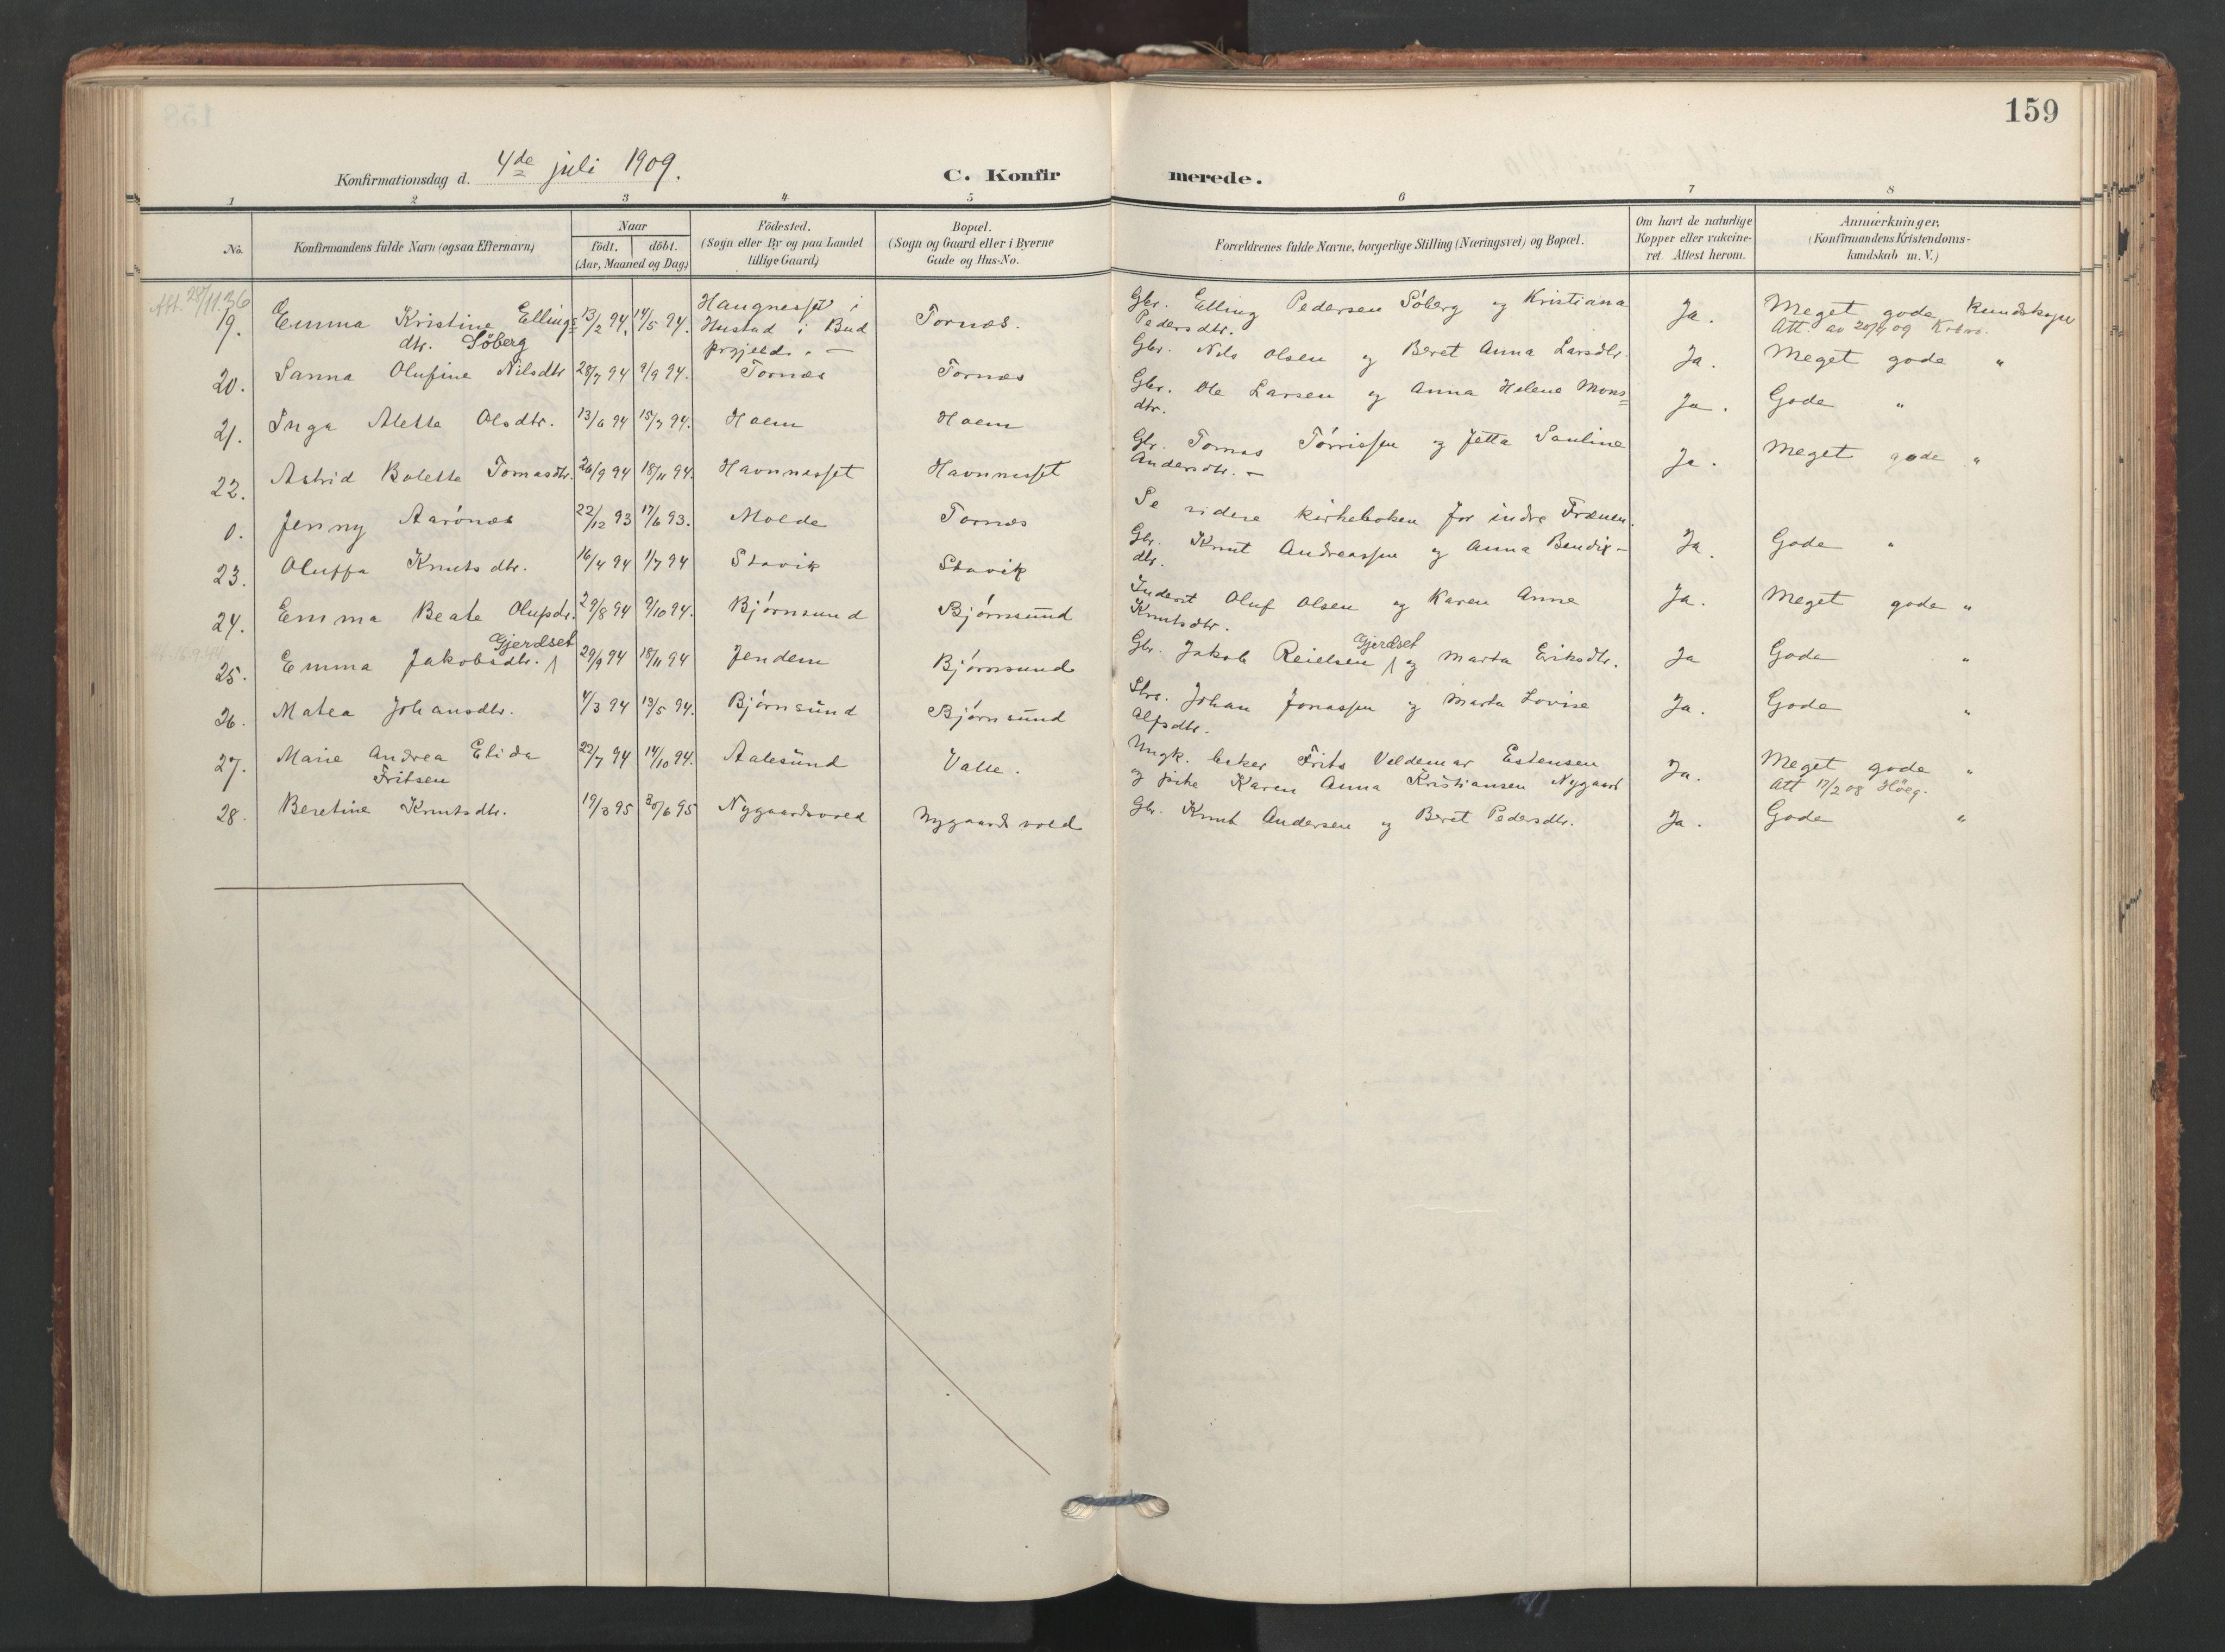 159
Konfirmationsdag d. 4de juli 1909.
C. Konfirmerede.
1 2 3 4 5 6 7 8
No.
Konfirmandens fulde Navn (ogsaa Efternavn)
Naar
födt. döbt.
(Aar, Maaned og Dag)
Födested.
(Sogn eller By og paa Landet
tillige Gaard)
Bopæl.
(Sogn og Gaard eller i Byerne
Gade og Hus-No.
Forældrenes fulde Navne, borgerlige Stilling (Næringsvei) og Bopæl.
Om havt de naturlige
Kopper eller vakcine-
ret. Attest herom.
Anmærkninger,
(Konfirmandens Kristendoms-
kundskab m. V.)
Att. 28/11.36
19. Emma Kristine Ellings= 13/2 94. 14/5 94. Haugnesset i Tornæs. Gbr. Elling Pedersen Söberg og Kristiana Ja. Meget gode kundskaper
dtr. Söberg Hustad i Bud Pedersdtr. Att. av 20/4 09
prgjeld. —
20. Sanna Olufine Nilsdtr 28/7 94 9/9 94. Tornæs Tornæs Gbr. Nils Olsen og Beret Anna Larsdtr. Ja. Meget gode "
21. Inga Alette Olsdtr. 13/6 94 15/7 94. Haem Haem Gbr. Ole Larsen og Anna Helene Mons= Ja. Gode "
dtr.
22. Astrid Bolette Tomasdtr. 26/9 94 18/11 94. Havnnesset Havnnesset Gbr. Tomas Törrissen og Jetta Pauline Ja. Meget gode "
Andersdtr. —
0. Jenny Aarönes 22/12 93 17/6 93. Molde Tornæs Se videre kirkeboken for indre Frænen.
23. Oluffa Knutsdtr. 16/4 94 1/7 94 Stavik Stavik Gbr. Knut Andreassen og Anna Bendix- Ja. Gode "
dtr.
24. Emma Beate Olufsdr. 29/8 94 9/10 94. Björnsund Björnsund Inderst Oluf Olsen og Karen Anne Ja. Meget gode "
Knutsdtr.
Gjerdset
25. Emma Jakobsdtr. 29/9 94 18/11 94 Jendem Björnsund Gbr. Jakob Reielsen Gjerdset og Marta Eriksdtr. Ja Gode "
26. Matea Johansdtr. 4/3 94 13/5 94. Björnsund Björnsund Johan Jonassen og Marta Lovise Ja. Gode "
Alfsdtr.
27. Marie Andrea Elida 22/7 94 14/10 94. Aalesund Valle. Ungk. baker Frits Veldemar Estensen Ja. Meget gode "
Fritsen og pike Karen Anna Kristiansen Nygaard Att 17/2 08 Höeg.
28. Beretine Knutsdtr. 19/3 95 30/6 95 Nygaardsvold Nygaardsvold Gbr. Knut Andersen og Beret Pedersdtr. Ja. Gode "